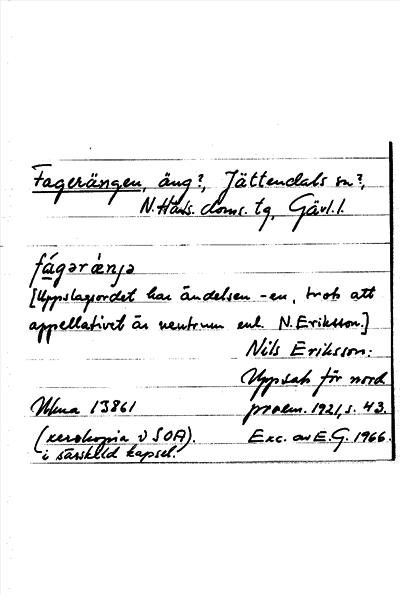 Fagerängen, äng?, Jättendals sn?,
N. Häls. doms. tg, Gävl. l.
fágərǽnjə
[Uppslagsordet har ändelsen -en, trots att
appellativet är neutrum enl. N. Eriksson.]
Nils Eriksson:
Uppsats för nord
Ulma 13861 proem. 1921, s. 43.
(xerokopia i SOA). Exc. av E.G. 1966.
i särskild kapsel.